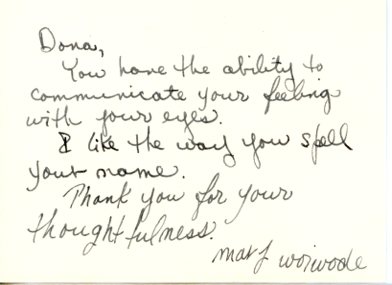 Dona,
You have the ability to
communicate your feeling
with your eyes.
I like the way you spell
your name.
Thank you for your
thoughtfulness.
Mary Woiwode